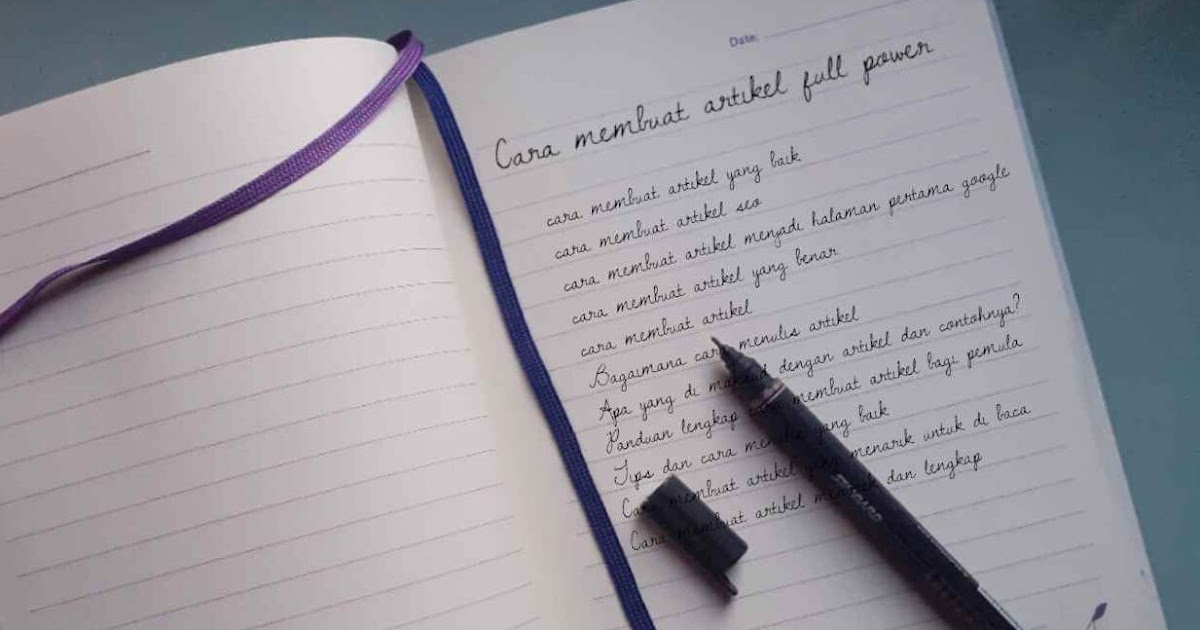 Date:
Cara membuat artikel full power
cara membuat artikel yang baik
cara membuat artikel seo
cara membuat artikel menjadi halaman pertama google
cara membuat artikel yang benar
cara membuat artikel
Bagaimana cara menulis artikel
Apa yang di maksud dengan artikel dan contohnya?
Panduan lengkap cara membuat artikel bagi pemula
Tips dan cara menulis yang baik
Cara membuat artikel yang menarik untuk di baca
Cara membuat artikel menarik dan lengkap